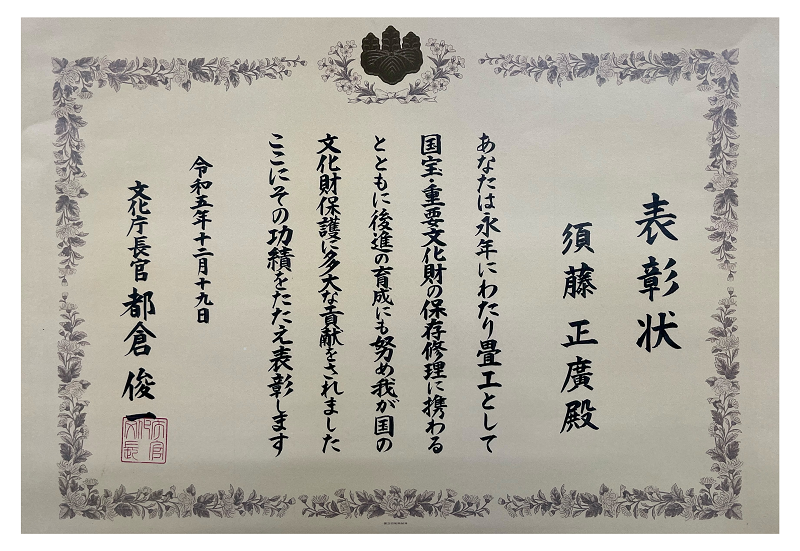 表彰状
須藤 正廣殿
あなたは永年にわたり畳工として
国宝・重要文化財の保存修理に携わる
とともに後進の育成にも努め我が国の
文化財保護に多大な貢献をされました
ここにその功績をたたえ表彰します
令和五年十二月十九日
文化庁長官 都倉 俊一